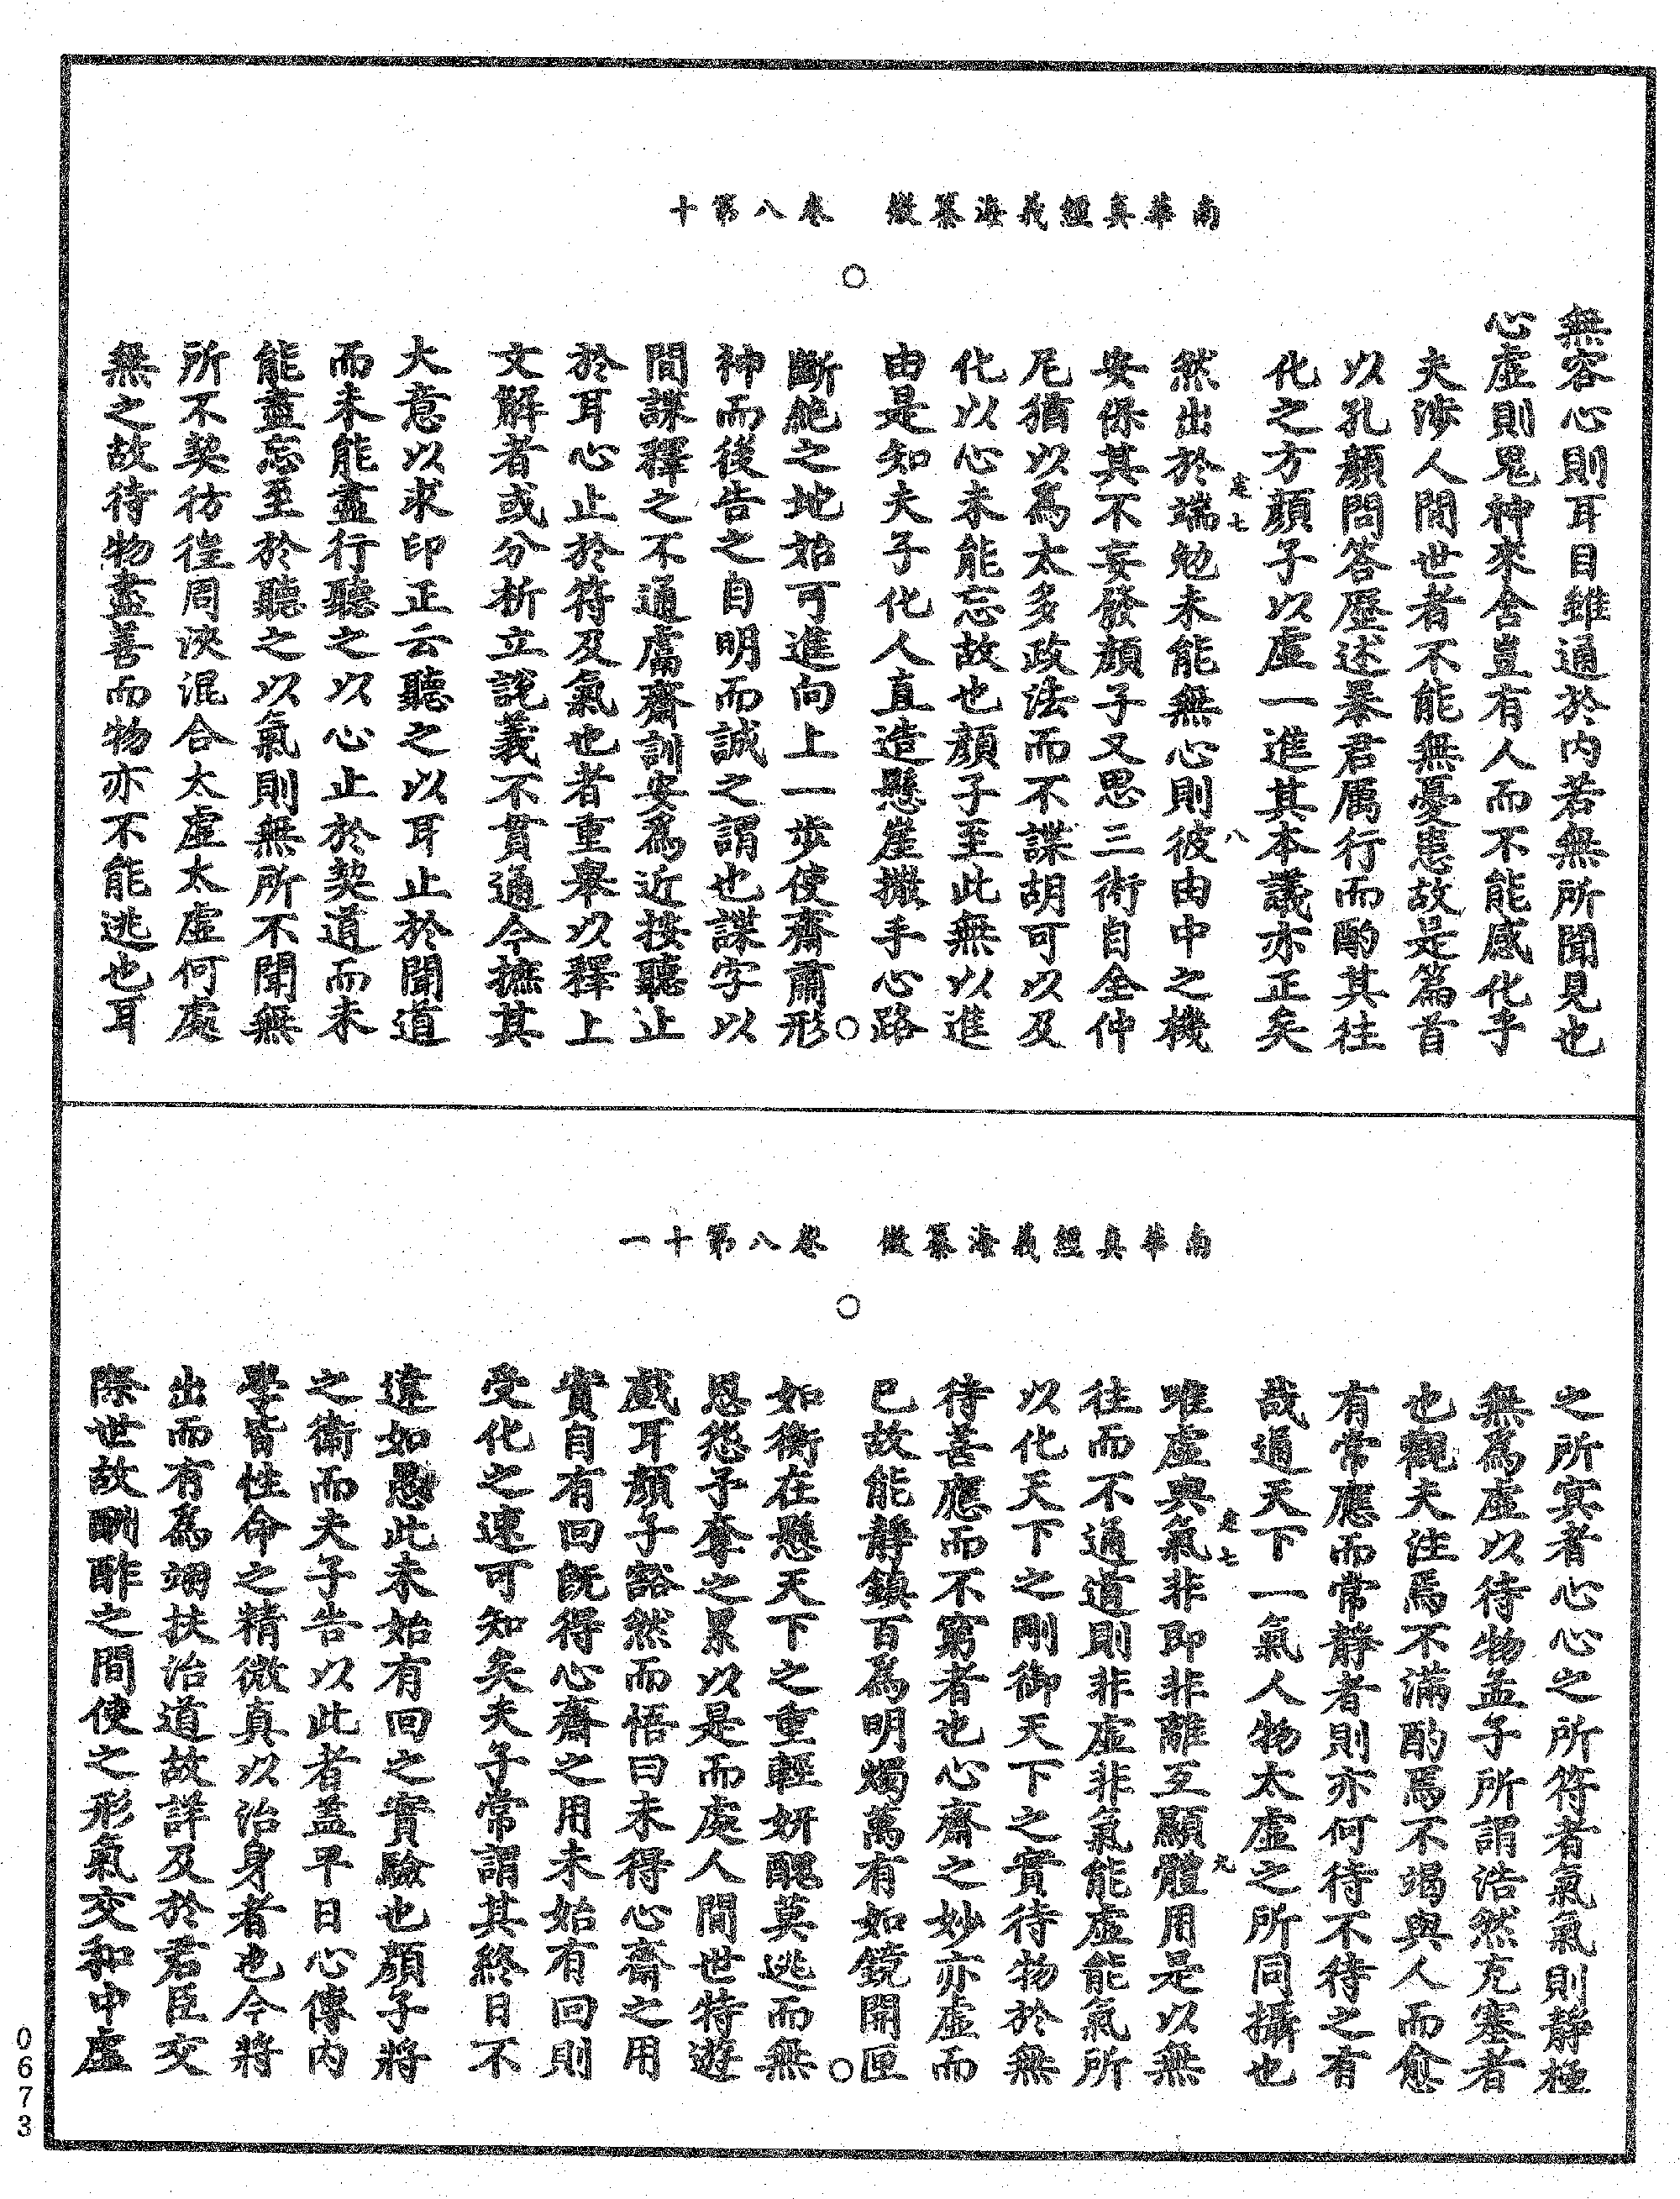 南華真經義海纂微　卷八第十
無容心則耳目雖通於內若無所聞見也
心虛則鬼神來舍豈有人而不能感化乎
夫涉人間世者不能無憂患故是篇首
以孔顏問答歷述暴君厲行而酌其往
化之方顏子以虛一進其本議亦正矣
然出於端勉未能無心則彼由中之機
安保其不妄發顏子又思三術自全仲
尼猶以為太多政法而不諜胡可以及
化以心未能忘故也顏子至此無以進
由是知夫子化人直造懸崖撒手心路
斷絕之地始可進向上一步使齋爾形
神而後告之自明而誠之謂也諜字以
間諜釋之不通鬳齋訓安為近按聽止
於耳心止於符及氣也者重舉以釋上
文解者或分析立說義不貫通今摭其
大意以求印正云聽之以耳止於聞道
而未能盡行聽之以心止於契道而未
能盡忘至於聽之以氣則無所不聞無
所不契彷徨周浹混合太虛太虛何處
無之故待物盡善而物亦不能逃也耳
㝎七
八
南華真經義海纂微　卷八第十一
之所冥者心心之所符者氣氣則靜極
無為虛以待物孟子所謂浩然充塞者
也觀夫注焉不滿酌焉不竭與人而愈
有常應而常靜者則亦何待不待之有
哉通天下一氣人物太虛之所同攝也
唯虛與氣非即非離互顯體用是以無
往而不通道則非虛非氣能虛能氣所
以化天下之剛御天下之實待物於無
待善應而不窮者也心齋之妙亦虛而
已故能靜鎮百為明燭萬有如鏡開匣
如衡在懸天下之重輕妍醜莫逃而無
恩怨予奪之累以是而處人間世特遊
戲耳顏子豁然而悟曰未得心齋之用
實自有回既得心齋之用未始有回則
受化之速可知矣夫子常謂其終日不
違如愚此未始有回之實驗也顏子將
之衛而夫子告以此者蓋平日心傳內
學皆性命之精微真以治身者也今將
出而有為翊扶治道故詳及於君臣交
際世故酬酢之間使之形氣交和中虛
㝎七
九
0673